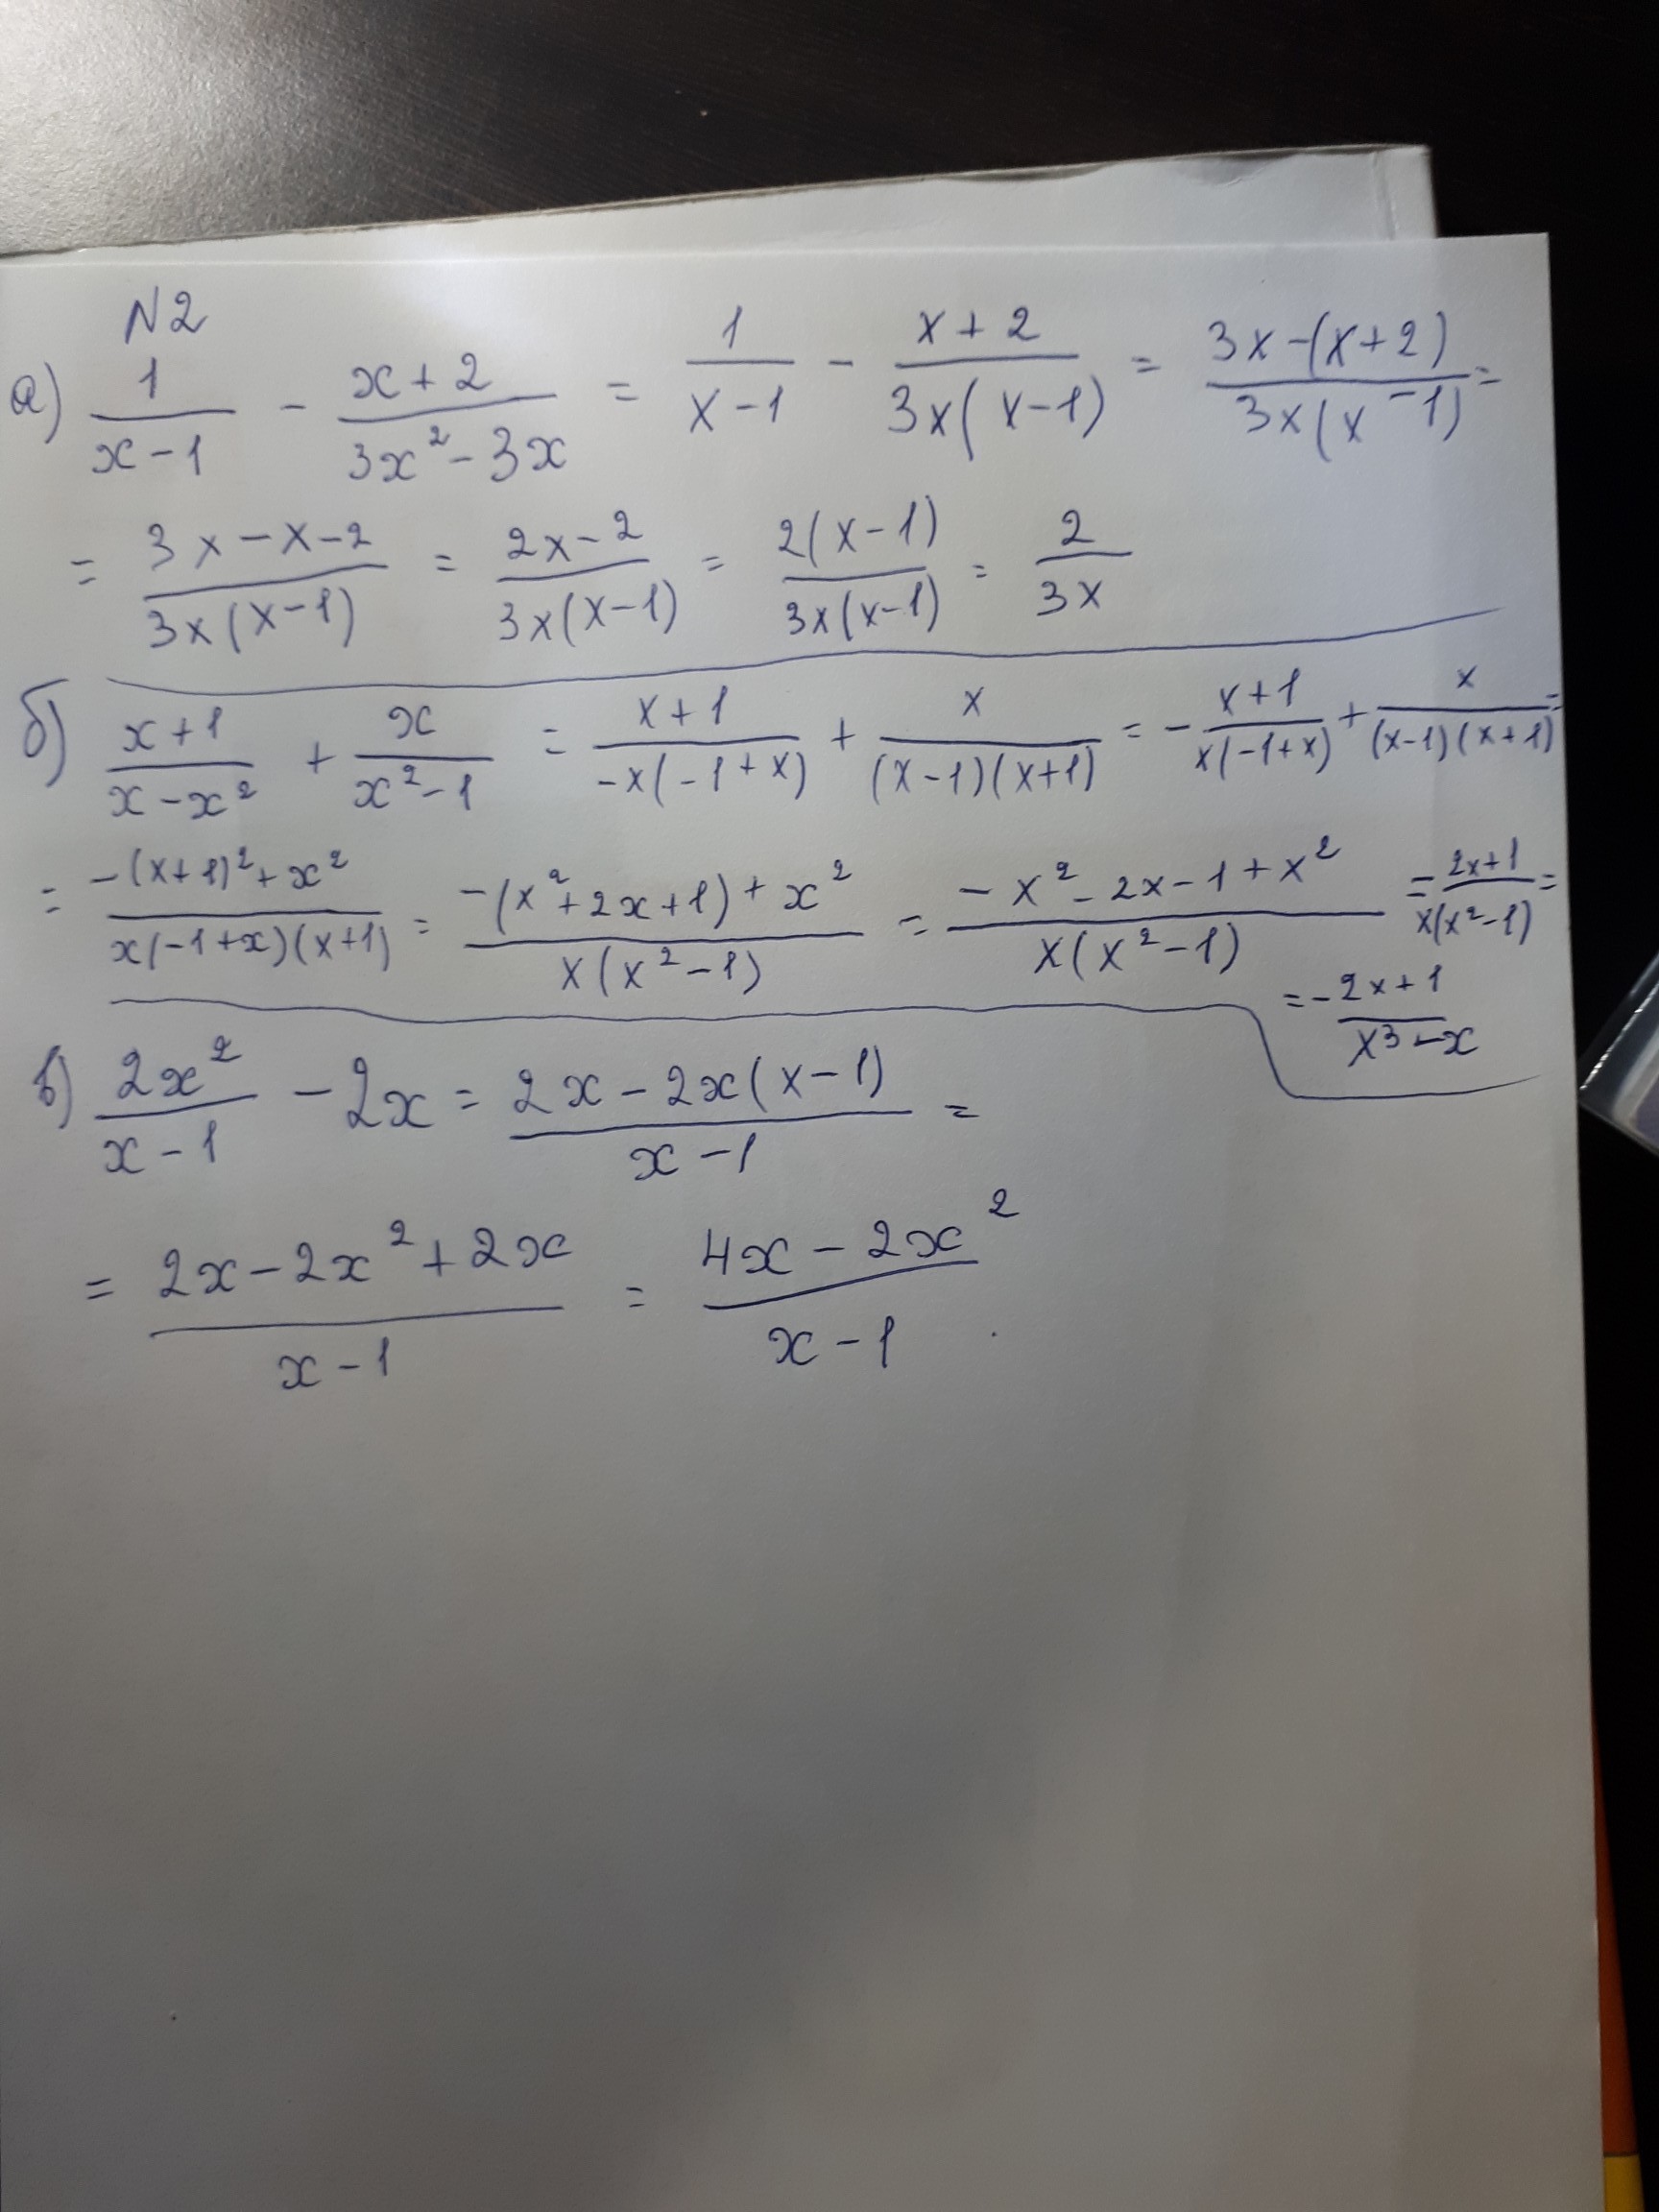 N2
а) 1/(x-1) - (x+2)/(3x²-3x) = 1/(x-1) - (x+2)/(3x(x-1)) = (3x-(x+2))/(3x(x-1)) =
= (3x-x-2)/(3x(x-1)) = (2x-2)/(3x(x-1)) = 2(x-1)/(3x(x-1)) = 2/(3x)
б) (x+1)/(x-x²) + x/(x²-1) = (x+1)/(-x(-1+x)) + x/((x-1)(x+1)) = - (x+1)/(x(-1+x)) + x/((x-1)(x+1)) =
= (-(x+1)²+x²)/(x(-1+x)(x+1)) = (-(x²+2x+1)+x²)/(x(x²-1)) = (-x²-2x-1+x²)/(x(x²-1)) = (2x+1)/(x(x²-1)) =
= - (2x+1)/(x³-x)
в) 2x²/(x-1) - 2x = (2x-2x(x-1))/(x-1) =
= (2x-2x²+2x)/(x-1) = (4x-2x²)/(x-1)